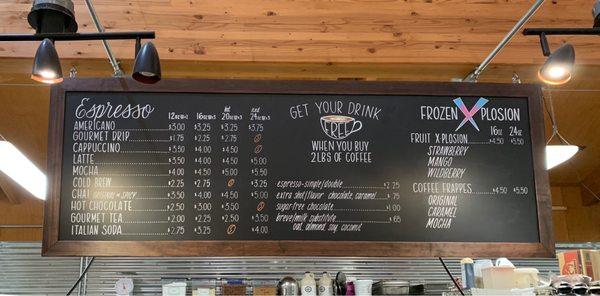 Espresso
12oz 16oz hot 20oz iced 24oz
AMERICANO $3.00 $3.25 $3.25 $3.75
GOURMET DRIP $1.75 $2.25 $2.75
CAPPUCCINO $3.50 $4.00 $4.50
LATTE $3.50 $4.00 $4.50 $5.00
MOCHA $4.00 $4.50 $5.00 $5.50
COLD BREW $2.25 $2.75 $3.25
CHAI $3.50 $4.00 $4.50 $5.00
HOT CHOCOLATE $2.50 $3.00 $3.50
GOURMET TEA $2.00 $2.25 $2.50 $3.50
ITALIAN SODA $2.75 $3.25 $4.00
GET YOUR DRINK
FREE
WHEN YOU BUY
2LBS OF COFFEE
espresso-simple/double $2.25
extra shot/flavor chocolate, caramel $.75
sugar-free chocolate $1.00
breve/milk substitute $.65
oat, almond, soy, coconut
FROZEN XPLOSION
16oz 24oz
FRUIT X-PLOSION $4.50 $5.50
STRAWBERRY
MANGO
WILDBERRY
COFFEE FRAPPES $4.50 $5.50
ORIGINAL
CARAMEL
MOCHA